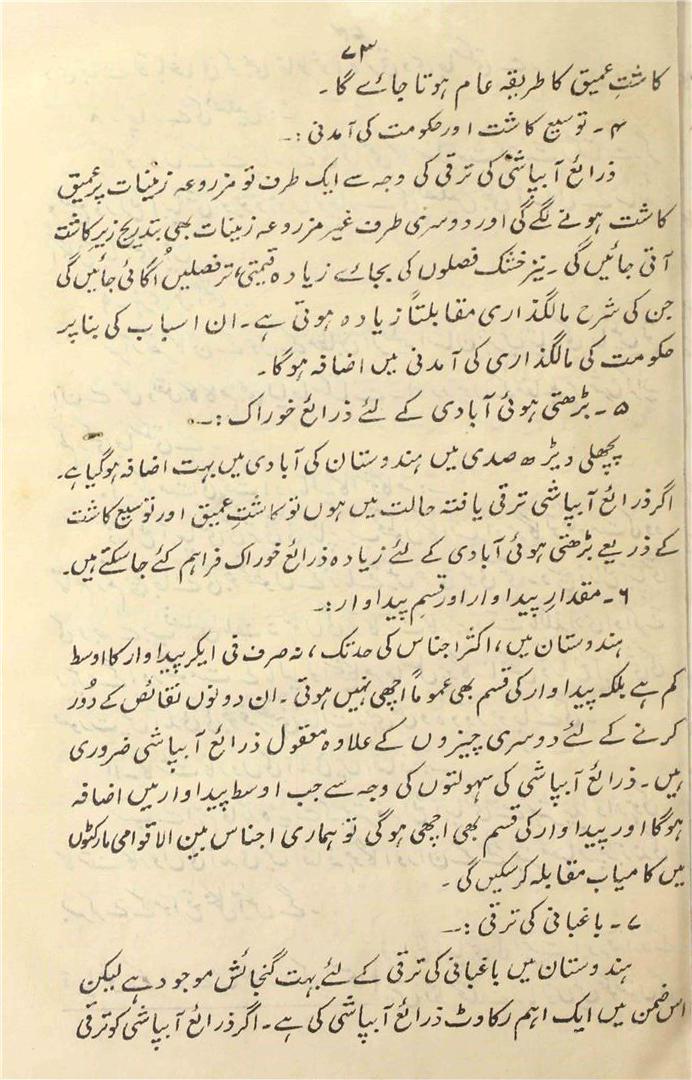 ۷۳
کاشتِ عمیق کا طریقہ عام ہوتا جائے گا۔
۴ ۔ توسیع کاشت اور حکومت کی آمدنی :۔
ذرائع آبپاشی کی ترقی کی وجہ سے ایک طرف تو مزروعہ زمینات پر عمیق
کاشت ہونے لگے گی اور دوسری طرف غیر مزروعہ زمینات بھی بتدریج زیر کاشت
آتی جائیں گی ۔ نیز خشک فصلوں کی بجائے زیادہ قیمتی، تر فصلیں اُگائی جائیں گی
جن کی شرح مالگذاری مقابلتاً زیادہ ہوتی ہے ۔ ان اسباب کی بنا پر
حکومت کی مالگذاری کی آمدنی میں اضافہ ہوگا۔
۵ ۔ بڑھتی ہوئی آبادی کے لئے ذرائع خوراک :۔
پچھلی دیڑھ صدی میں ہندوستان کی آبادی میں بہت اضافہ ہوگیا ہے۔
اگر ذرائع آبپاشی ترقی یافتہ حالت میں ہوں تو کاشتِ عمیق اور توسیع کاشت
کے ذریعے بڑھتی ہوئی آبادی کے لئے زیادہ ذرائع خوراک فراہم کئے جاسکتے ہیں۔
۶ ۔ مقدارِ پیداوار اور قسمِ پیداوار :۔
ہندوستان میں، اکثر اجناس کی حد تک، نہ صرف فی ایکر پیداوار کا اوسط
کم ہے بلکہ پیداوار کی قسم بھی عموماً اچھی نہیں ہوتی ۔ ان دونوں نقائص کے دُور
کرنے کے لئے دوسری چیزوں کے علاوہ معقول ذرائع آبپاشی ضروری
ہیں ۔ ذرائع آبپاشی کی سہولتوں کی وجہ سے جب اوسط پیداوار میں اضافہ
ہوگا اور پیداوار کی قسم بھی اچھی ہوگی تو ہماری اجناس بین الاقوامی مارکٹوں
میں کامیاب مقابلہ کرسکیں گی ۔
۷ ۔ باغبانی کی ترقی :۔
ہندوستان میں باغبانی کی ترقی کے لئے بہت گنجائش موجود ہے لیکن
اس ضمن میں ایک اہم رکاوٹ ذرائع آبپاشی کی ہے ۔ اگر ذرائع آبپاشی کو ترقی